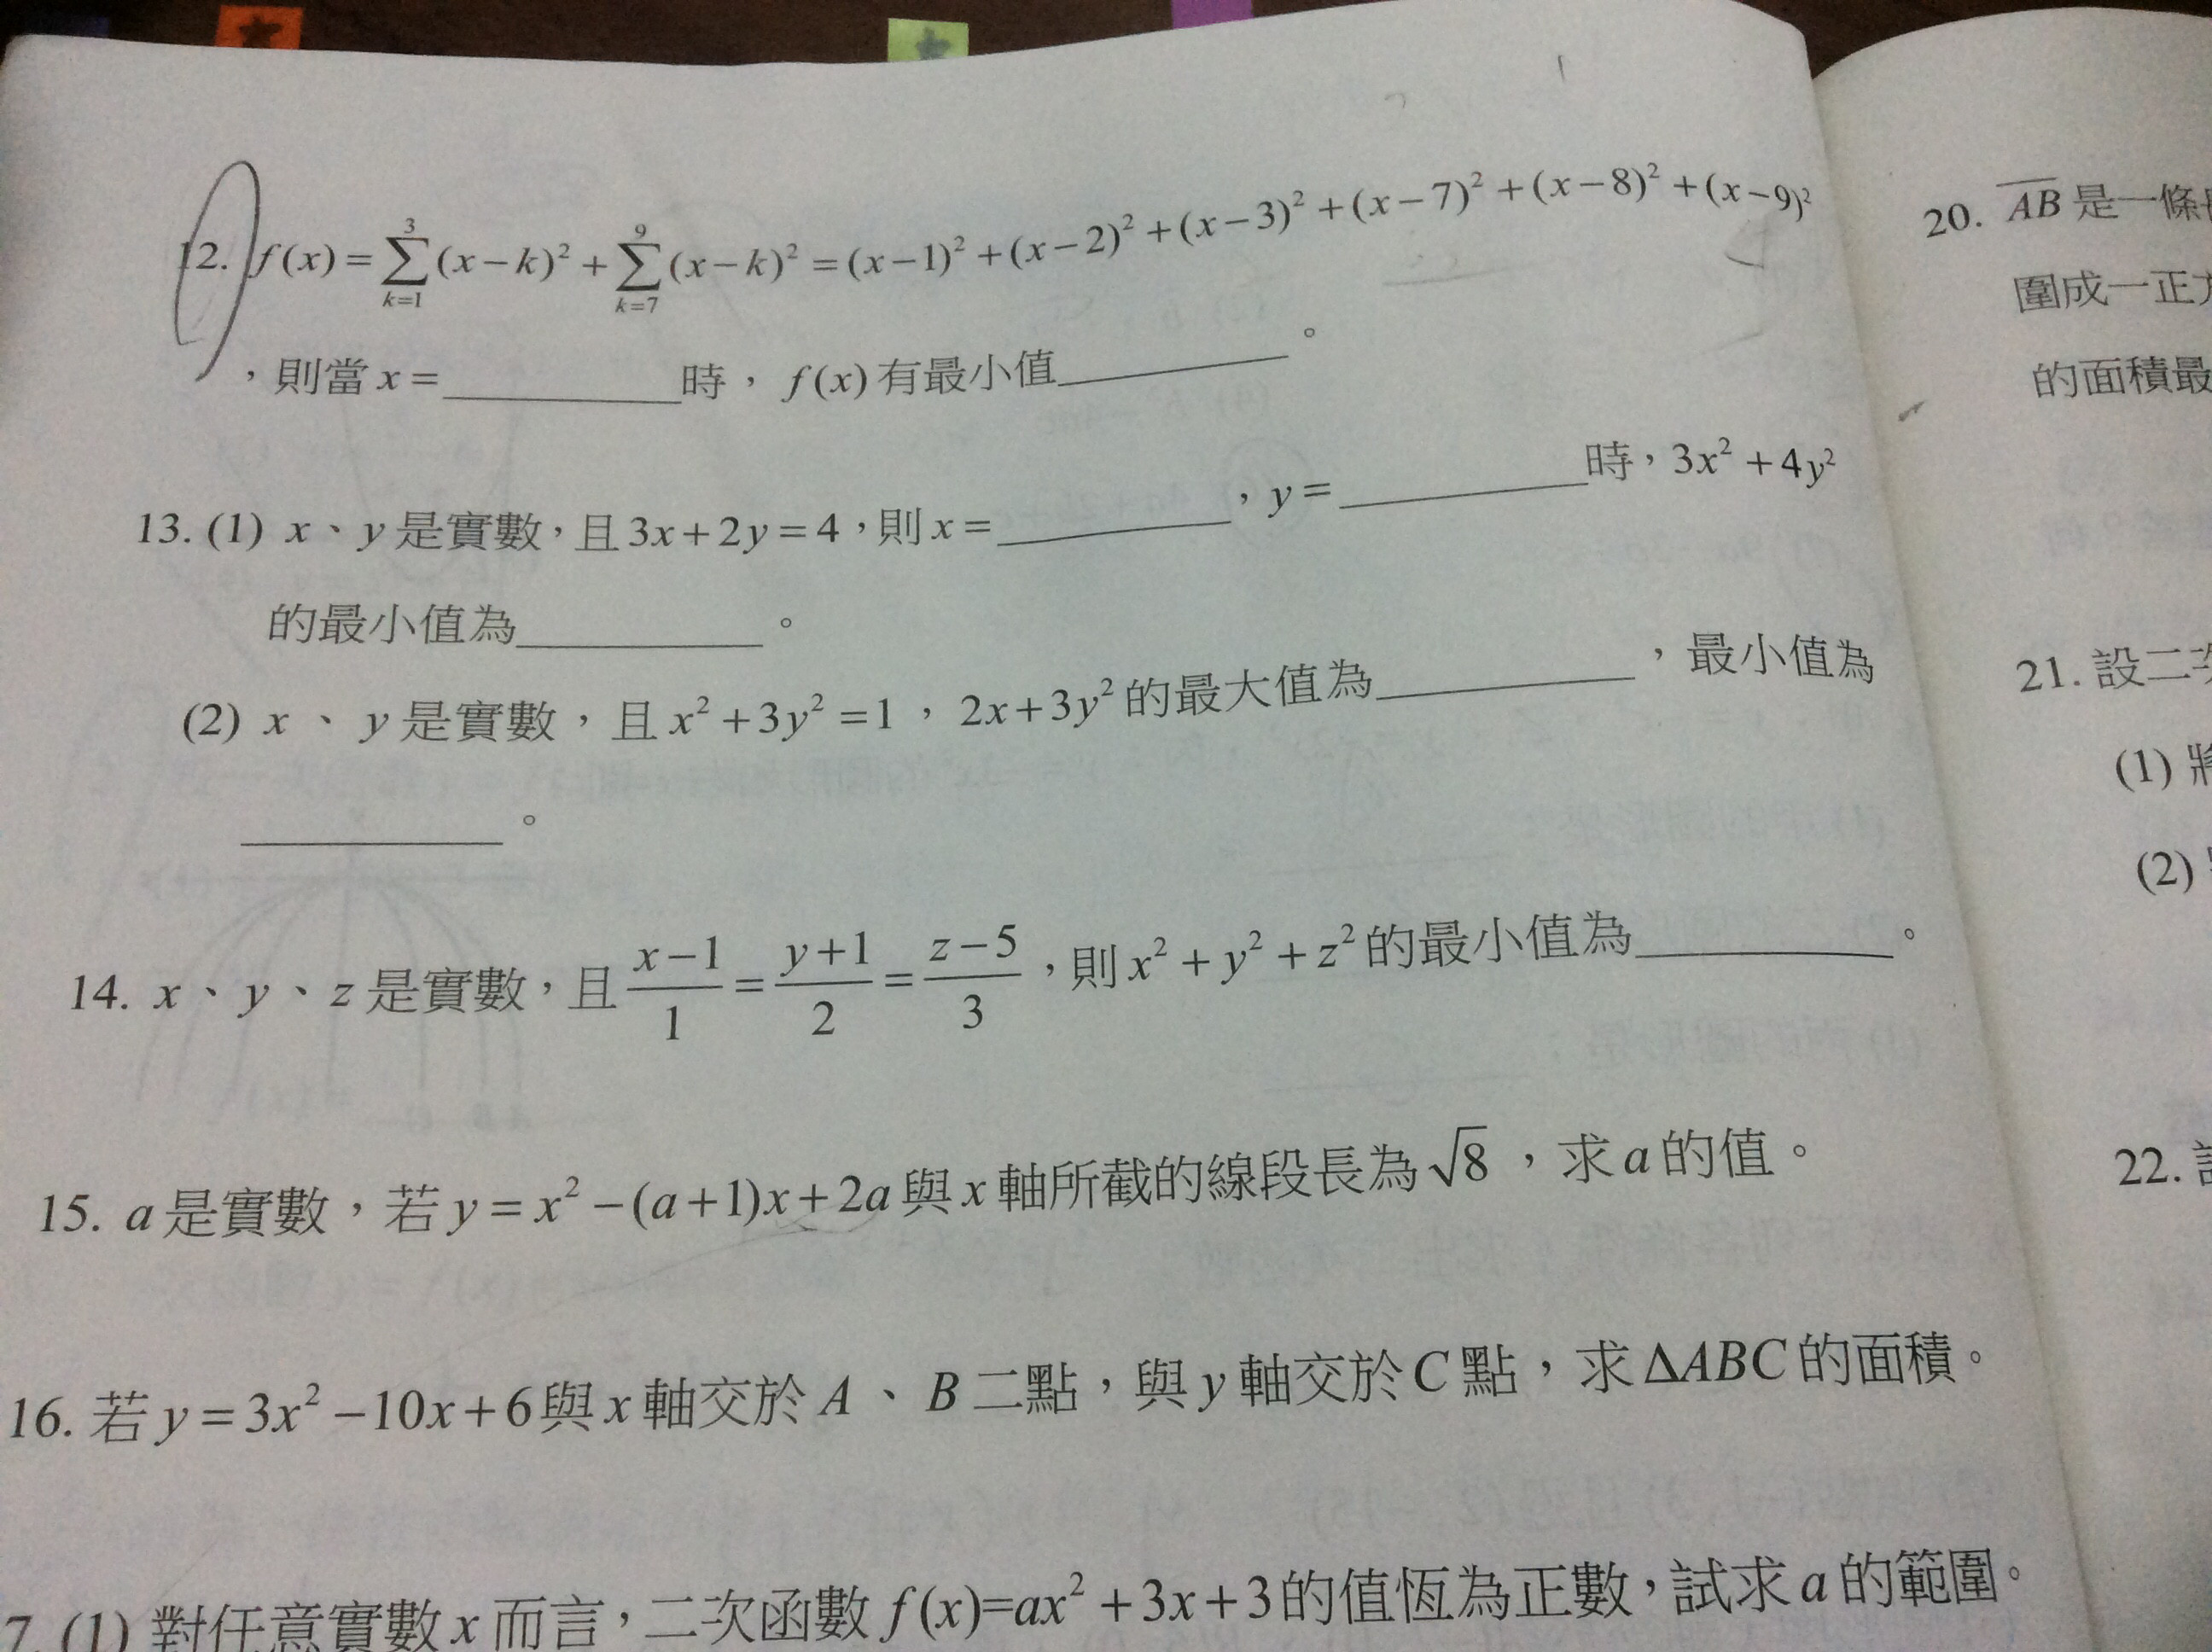 12. f(x) = \sum_{k=1}^{3}(x-k)² + \sum_{k=7}^{9}(x-k)² = (x-1)² + (x-2)² + (x-3)² + (x-7)² + (x-8)² + (x-9)²
，則當 x = ________ 時， f(x) 有最小值 ________ 。
13. (1) x、y 是實數，且 3x+2y=4，則 x = ________ ，y = ________ 時，3x² +4y²
的最小值為 ________ 。
(2) x 、 y 是實數，且 x² +3y² =1 ， 2x+3y² 的最大值為 ________ ，最小值為
________ 。
14. x、y、z 是實數，且 \frac{x-1}{1} = \frac{y+1}{2} = \frac{z-5}{3} ，則 x² + y² + z² 的最小值為 ________ 。
15. a 是實數，若 y = x² -(a+1)x+2a 與 x 軸所截的線段長為 √8 ，求 a 的值。
16. 若 y = 3x² -10x+6 與 x 軸交於 A 、 B 二點，與 y 軸交於 C 點，求 ΔABC 的面積。
7. (1) 對任意實數 x 而言，二次函數 f(x)=ax² +3x+3 的值恆為正數，試求 a 的範圍。
20. \overline{AB} 是一條
圍成一正
的面積最
21. 設二
(1)
(2)
22.